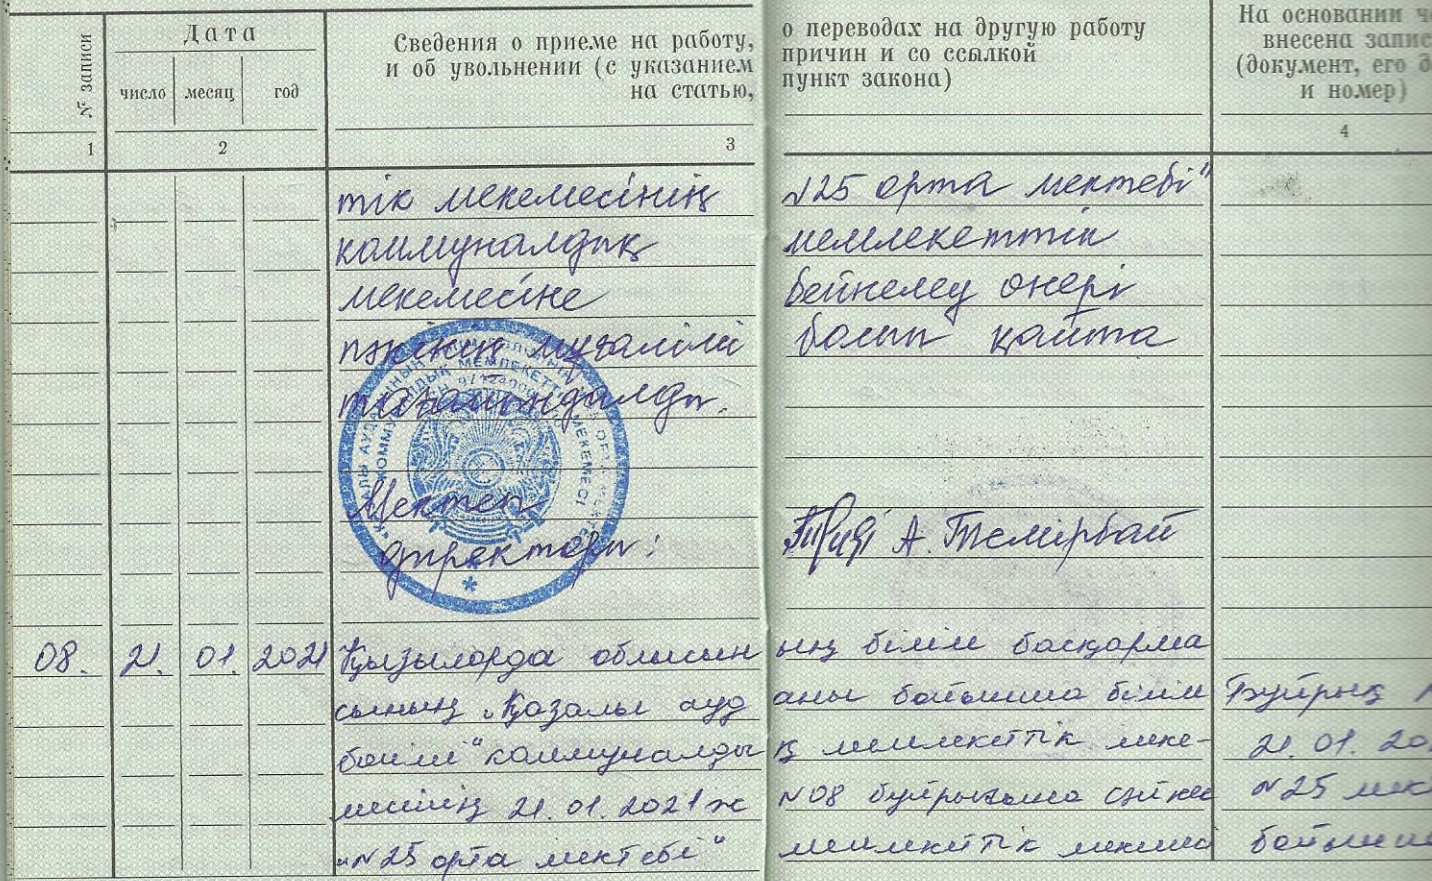 № записи
Дата
число месяц год
Сведения о приеме на работу,
и об увольнении (с указанием
на статью,
о переводах на другую работу
причин и со ссылкой
пункт закона)
На основании
внесена запис
(документ, его д
и номер)
1 2 3 4
тік мекемесінің №25 орта мектебі"
коммуналдық мемлекеттік
мекемесіне бейнелеу өнері
пәнінің мұғалімі болып қайта
тағайындалды.
Мектеп
директоры: А. Темірбай
08. 21. 01. 2021 Қызылорда облысын ың білім басқарма
сының "Қазалы ауд аны бойынша білім Бұйрық
бөлімі" коммуналды қ мемлекеттік меке- 21. 01. 20
месінің 21.01.2021ж №08 бұйрығына сәйкес №25 мек
"№25 орта мектебі" мемлекеттік мекеме бойынша